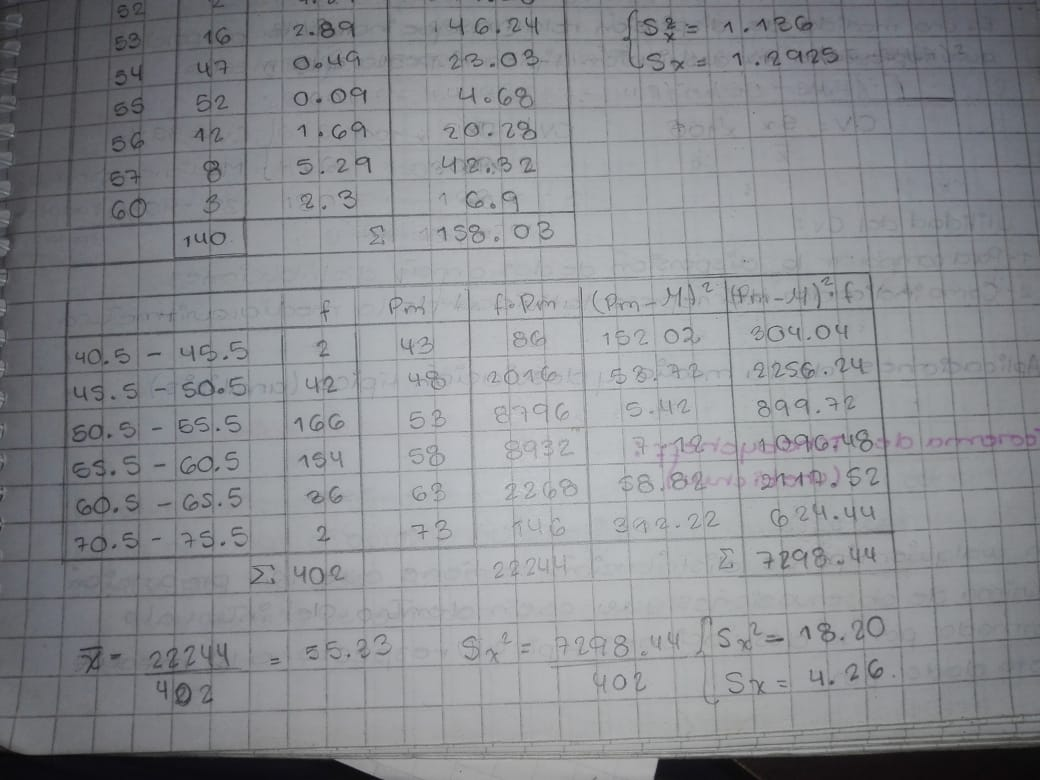 52 2
53 16 2.89 46.24 Sx² = 1.126
54 47 0.49 23.03 Sx = 1.2925
55 52 0.09 4.68
56 12 1.69 20.28
57 8 5.29 42.32
60 3 2.3 6.9
140 Σ 158.03
f Pm f·Pm (Pm-M)² (Pm-M)²·f
40.5 - 45.5 2 43 86 152.02 304.04
45.5 - 50.5 42 48 2016 53.72 2256.24
50.5 - 55.5 166 53 8796 5.42 899.72
55.5 - 60.5 154 58 8932 7.12 1096.48
60.5 - 65.5 36 63 2268 58.82 2117.52
70.5 - 75.5 2 73 146 312.22 624.44
Σ 402 22244 Σ 7298.44
x̄ = 22244 / 402 = 55.33 Sx² = 7298.44 / 402 Sx² = 18.20
Sx = 4.26